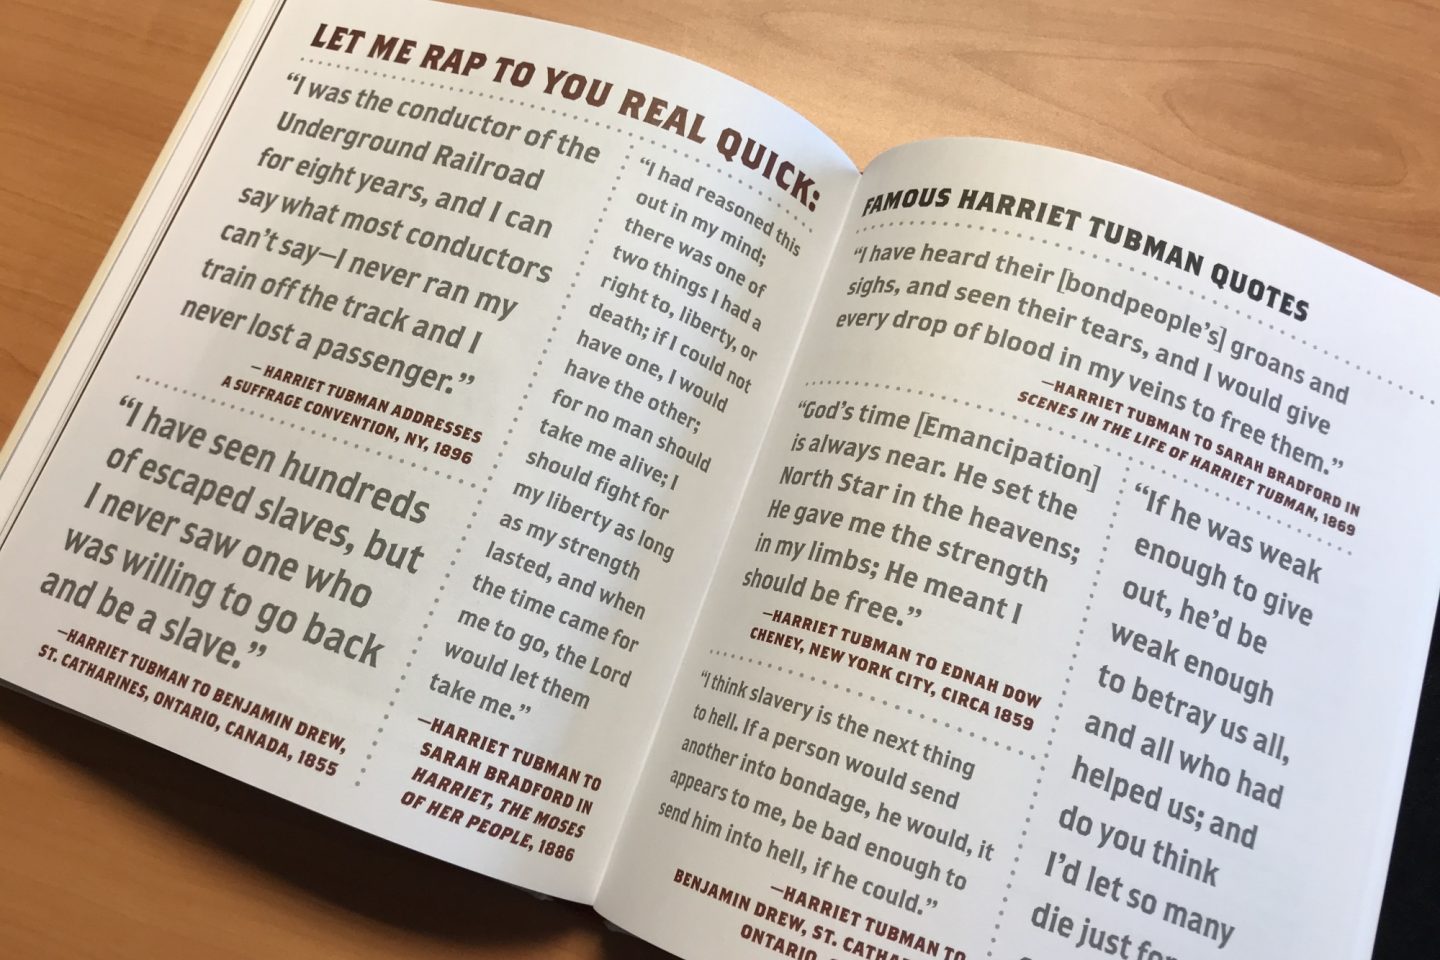 LET ME RAP TO YOU REAL QUICK:
“I was the conductor of the
Underground Railroad
for eight years, and I can
say what most conductors
can’t say—I never ran my
train off the track and I
never lost a passenger.”
—HARRIET TUBMAN ADDRESSES
A SUFFRAGE CONVENTION, NY, 1896
“I have seen hundreds
of escaped slaves, but
I never saw one who
was willing to go back
and be a slave.”
—HARRIET TUBMAN TO BENJAMIN DREW,
ST. CATHARINES, ONTARIO, CANADA, 1855
“I had reasoned this
out in my mind;
there was one of
two things I had a
right to, liberty, or
death; if I could not
have one, I would
have the other;
for no man should
take me alive; I
should fight for
my liberty as long
as my strength
lasted, and when
the time came for
me to go, the Lord
would let them
take me.”
—HARRIET TUBMAN TO
SARAH BRADFORD IN
HARRIET, THE MOSES
OF HER PEOPLE, 1886
FAMOUS HARRIET TUBMAN QUOTES
“I have heard their [bondpeople’s] groans and
sighs, and seen their tears, and I would give
every drop of blood in my veins to free them.”
—HARRIET TUBMAN TO SARAH BRADFORD IN
SCENES IN THE LIFE OF HARRIET TUBMAN, 1869
“God’s time [Emancipation]
is always near. He set the
North Star in the heavens;
He gave me the strength
in my limbs; He meant I
should be free.”
—HARRIET TUBMAN TO EDNAH DOW
CHENEY, NEW YORK CITY, CIRCA 1859
“I think slavery is the next thing
to hell. If a person would send
another into bondage, he would, it
appears to me, be bad enough to
send him into hell, if he could.”
—HARRIET TUBMAN TO
BENJAMIN DREW, ST. CATHAR
ONTARIO,
“If he was weak
enough to give
out, he’d be
weak enough
to betray us all,
and all who had
helped us; and
do you think
I’d let so many
die just for